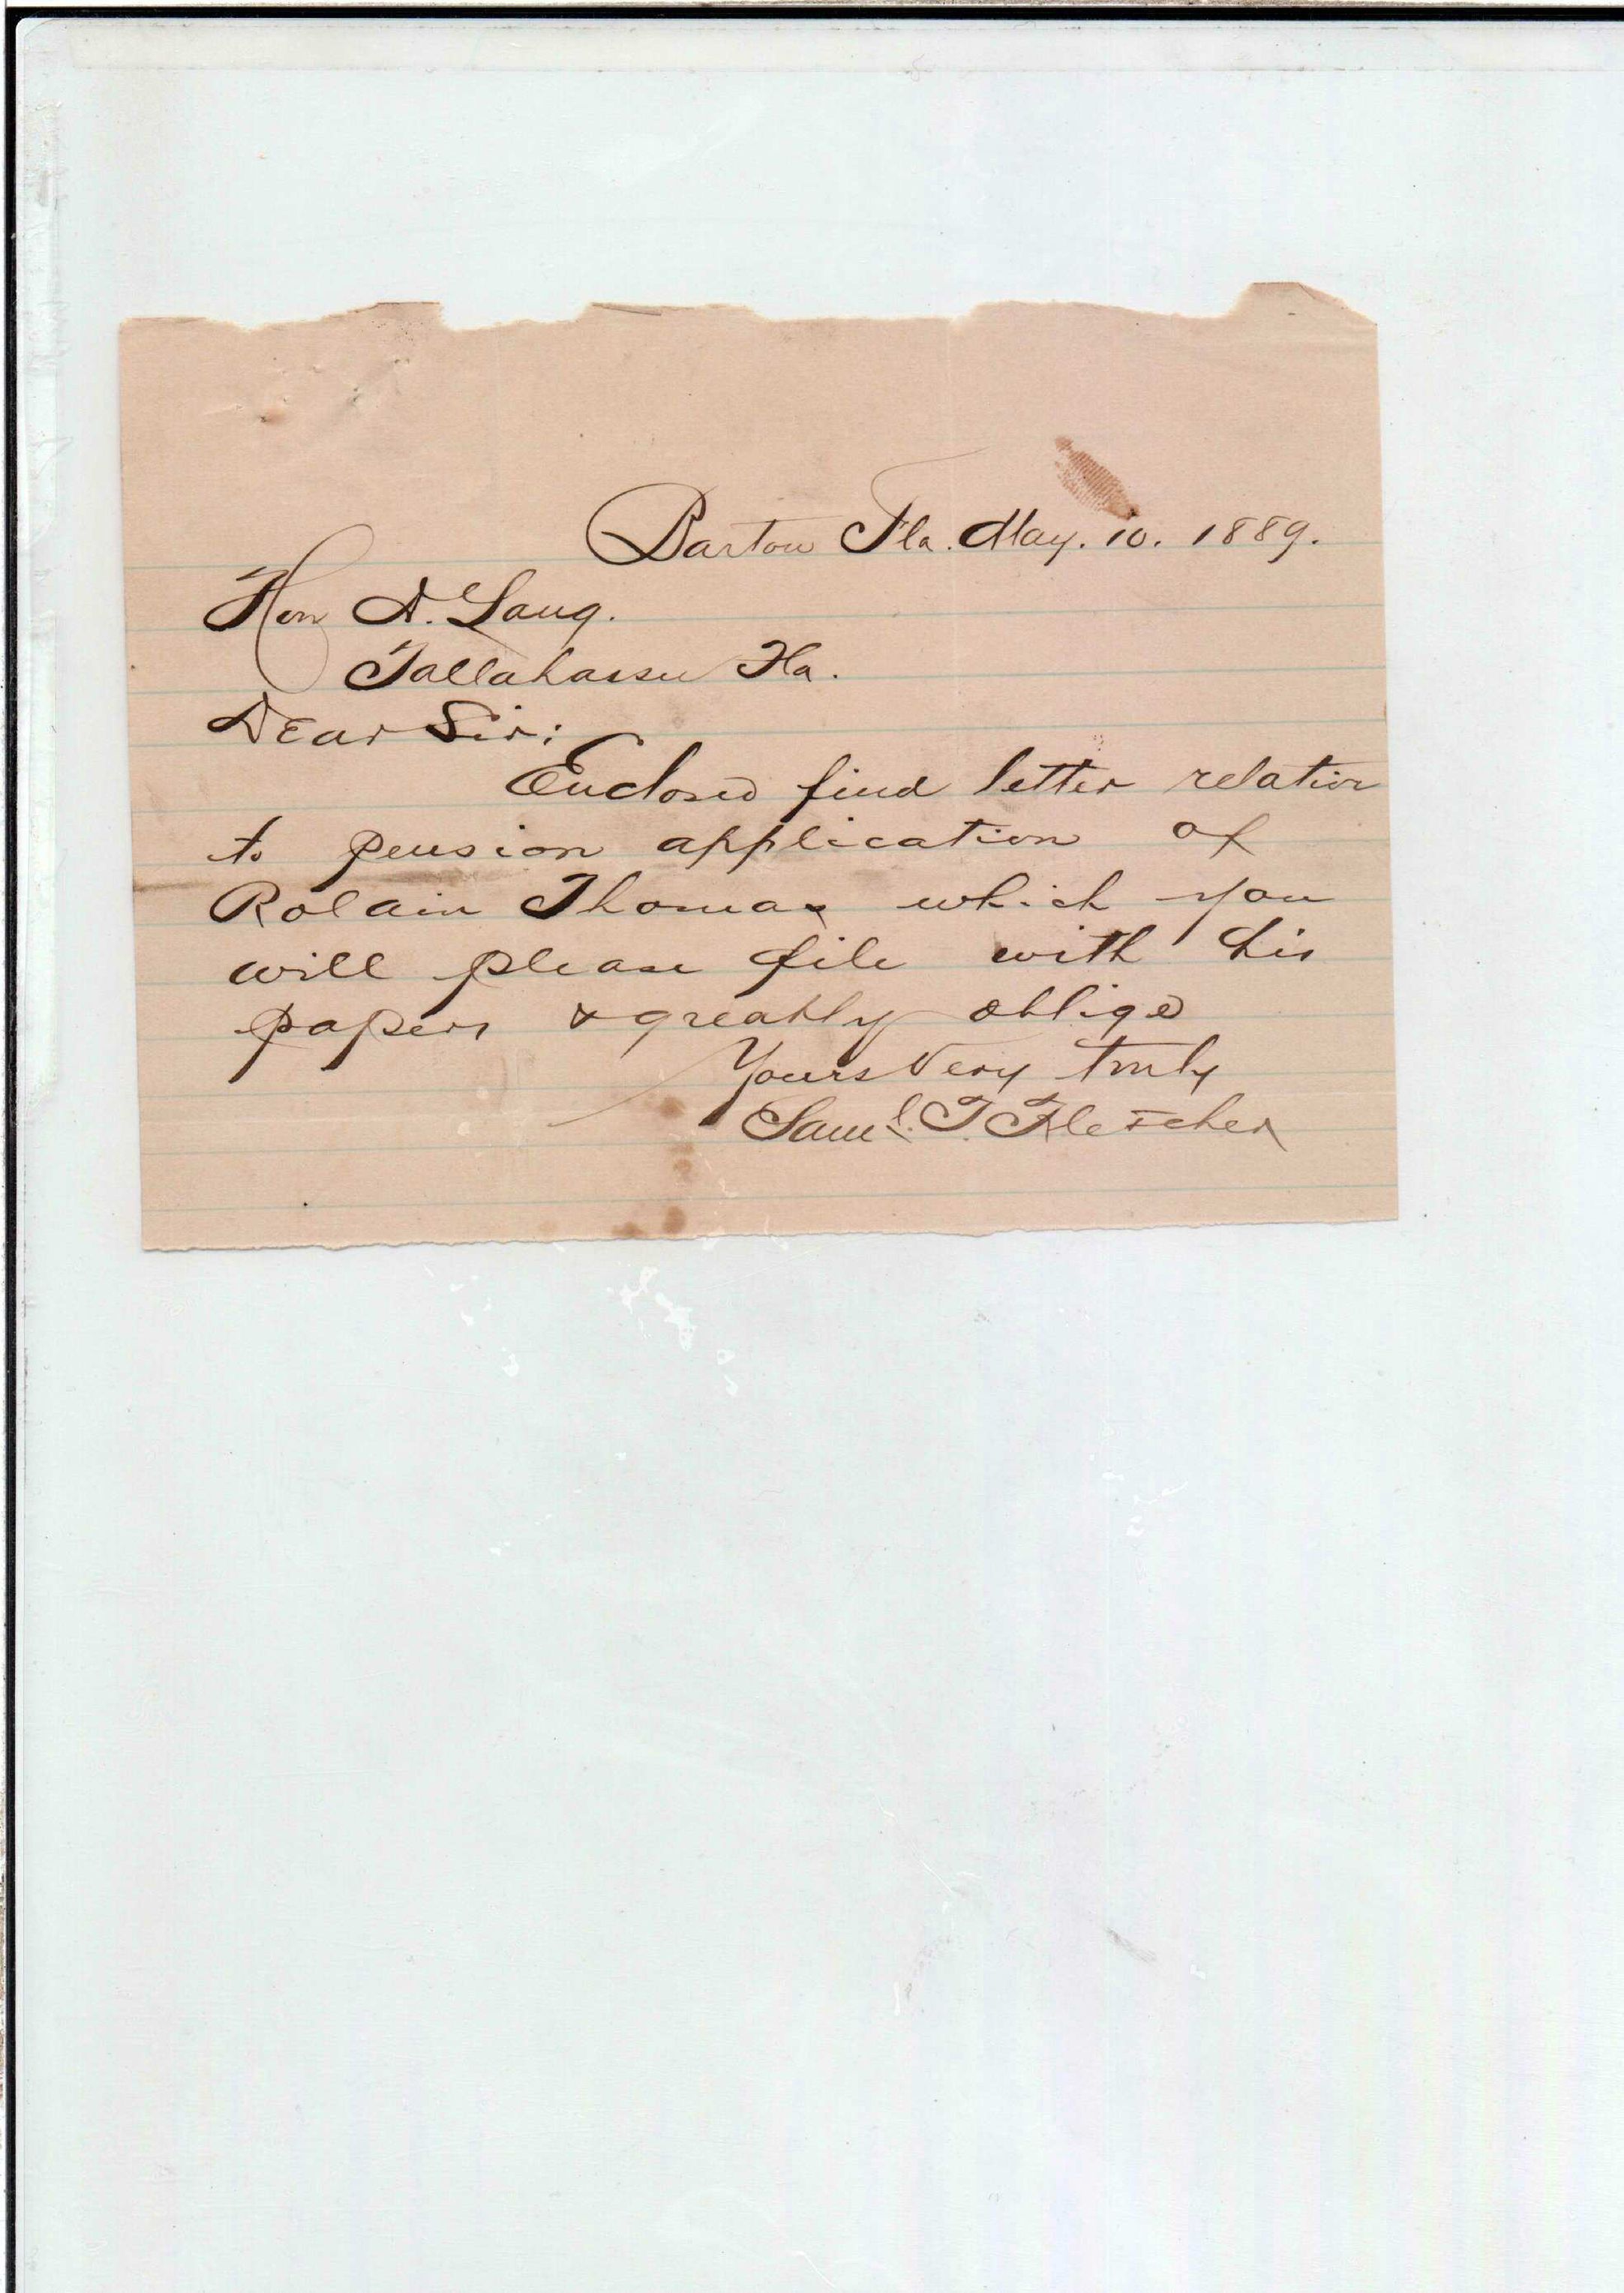 Bartow Fla. May. 10. 1889.
Hon D. Lang.
Tallahassee Fla.
Dear Sir:
Enclosed find letter relative
to pension application of
Rolain Thomas which you
will please file with his
papers & greatly oblige
Yours Very truly
Saml. T. Fletcher